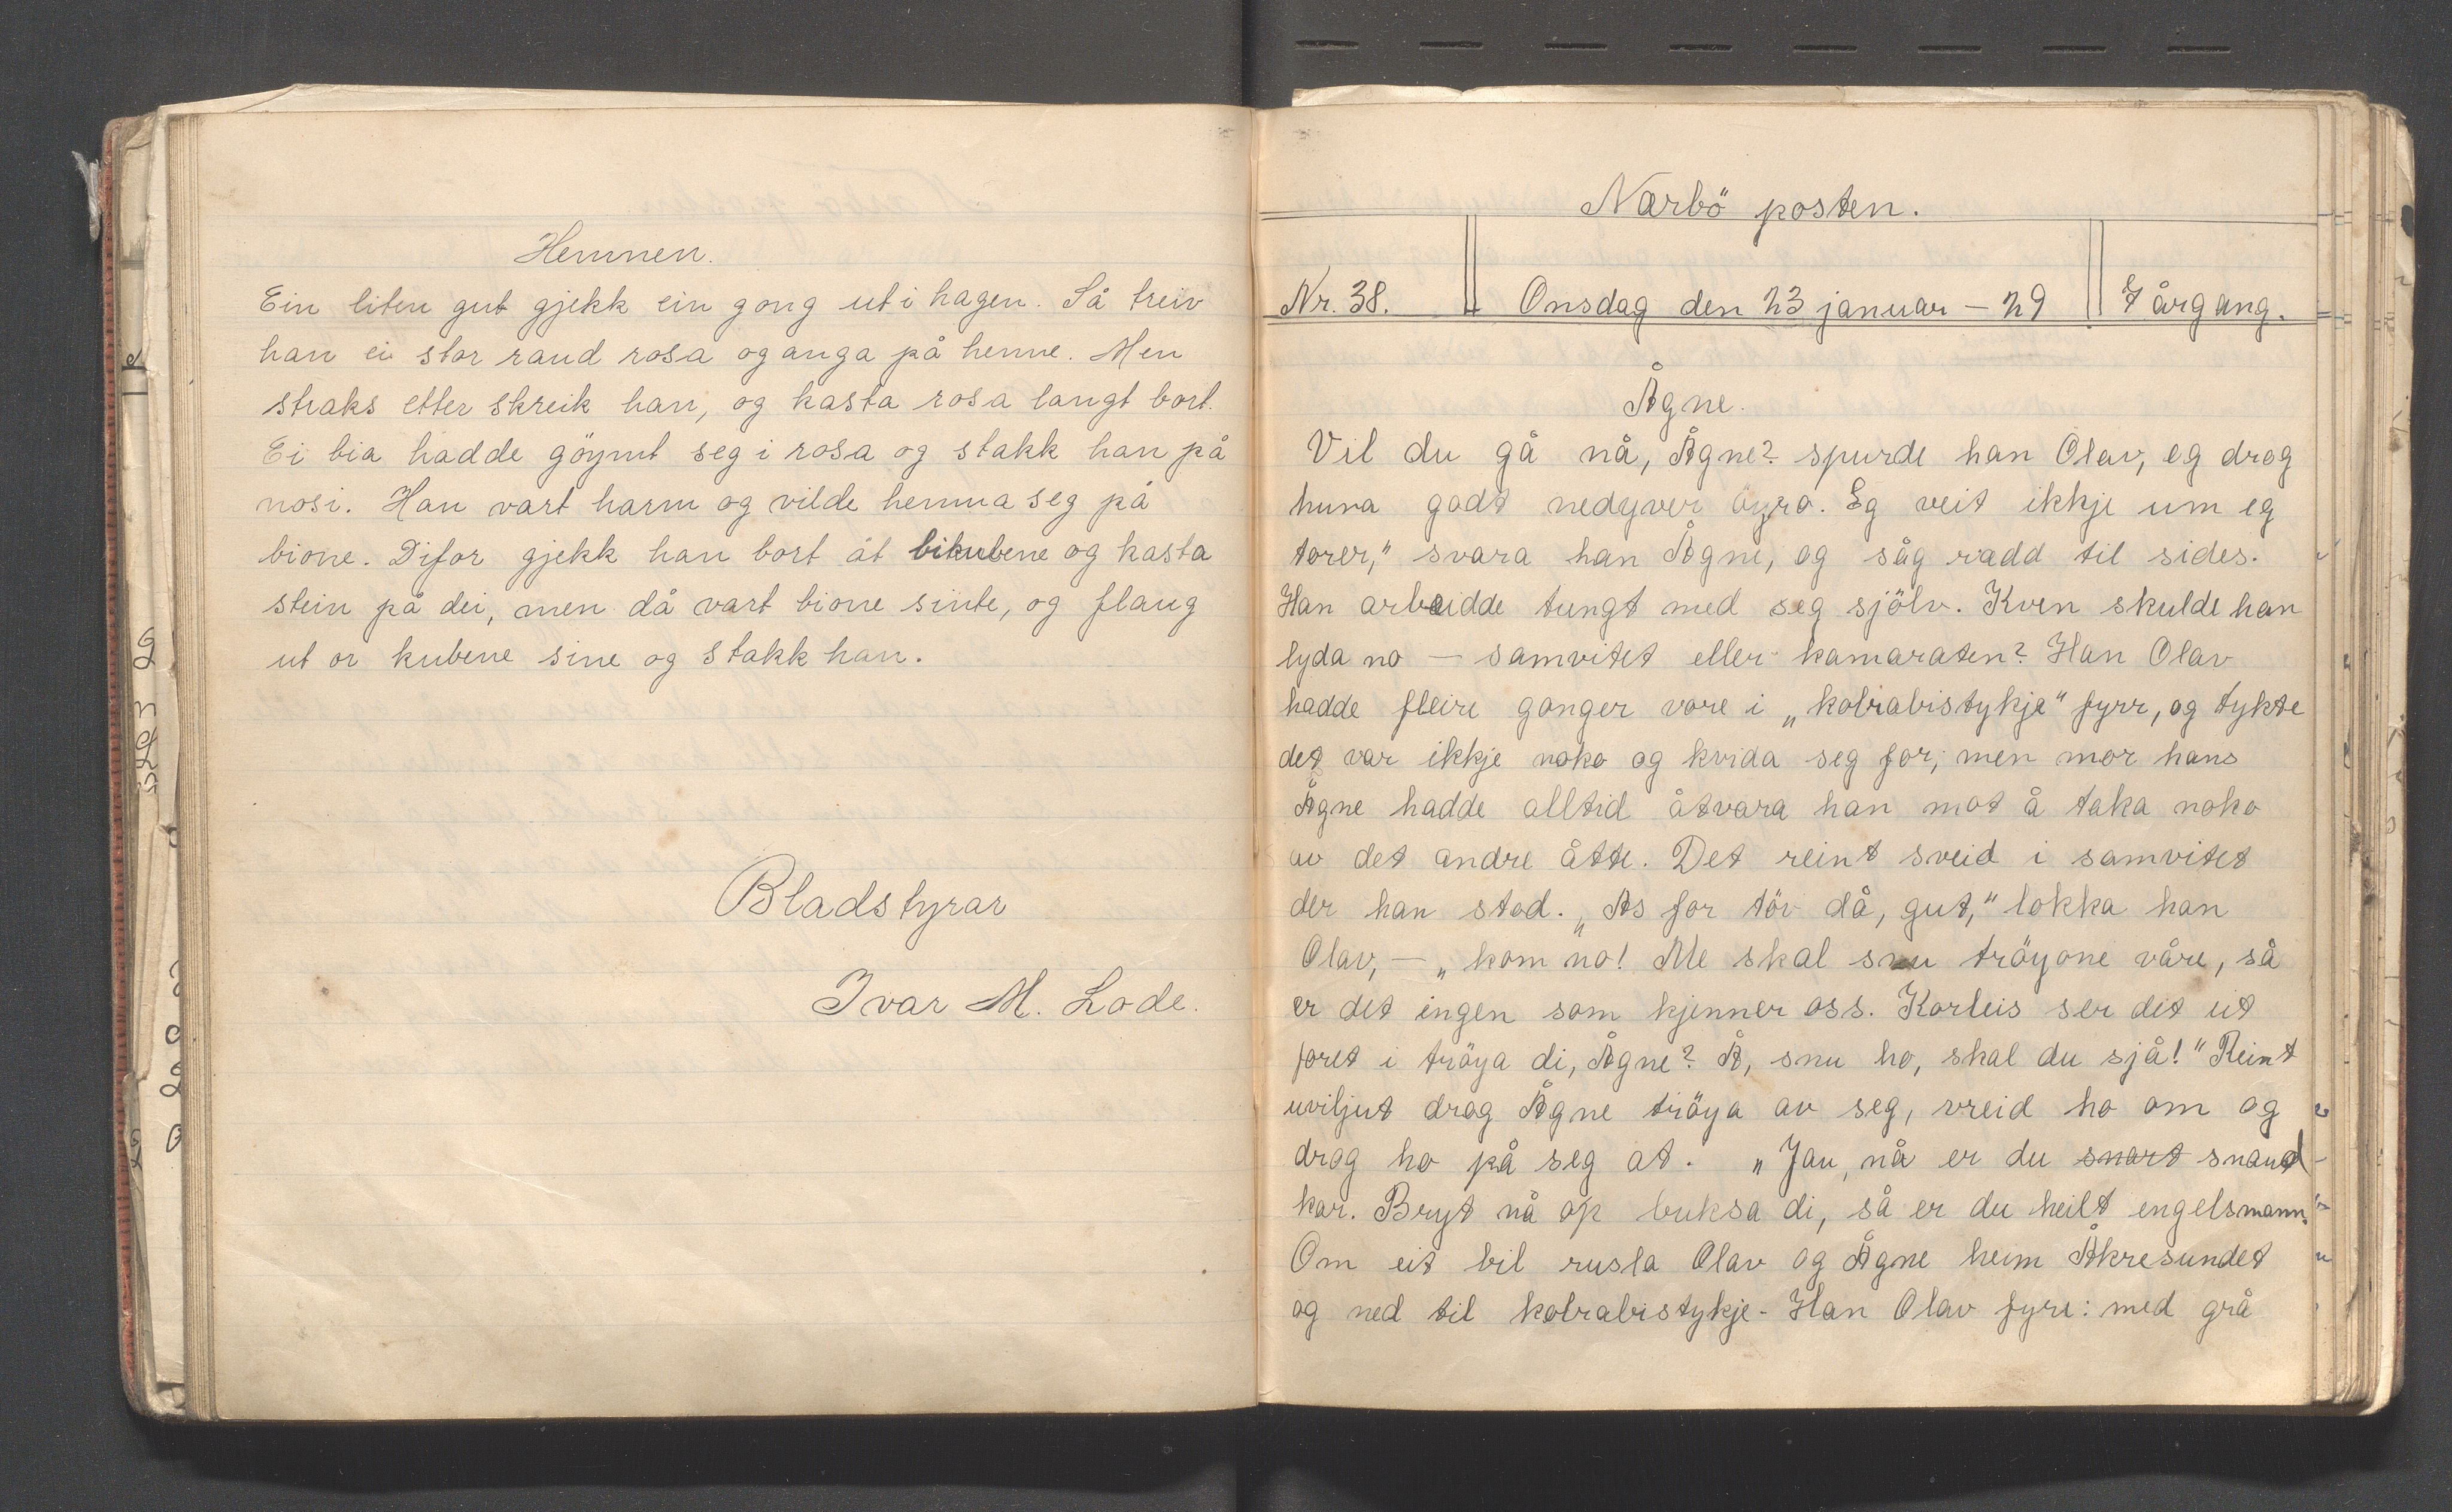 Hemnen.
Ein liten gut gjekk ein gong ut i hagen. Så treiv
han ei stor raud rosa og anga på henne. Men
straks etter skreik han, og kasta rosa langt bort.
Ei bia hadde göymt seg i rosa og stakk han på
nosi. Han vart harm og vilde hemna seg på
bione. Difor gjekk han bort åt bikubene og kasta
stein på dei, men då vart bione sinte, og flaug
ut or kubene sine og stakk han.
Bladstyrar
Ivar M. Lode.
Nærbö posten.
Nr. 38. Onsdag den 23 januar - 29 7 årgang.
Ågne.
Vil du gå nå, Ågne? spurde han Olav, eg drog
huva godt nedyver öyro. Eg veit ikkje um eg
torer," svara han Ågne, og såg radd til sides.
Han arbeidde tungt med seg sjölv. Kven skulde han
lyda no — samvitet eller kamaraten? Han Olav
hadde fleire ganger vore i „kolrabistykje" fyrr, og tykte
det var ikkje noko og kvida seg for, men mor hans
Ågne hadde alltid åtvara han mot å taka noko
av det andre åtte. Det reint sveid i samvitet
der han stod. „As for töv då, gut," lokka han
Olav, — „kom no! Me skal snu tröyone våre, så
er det ingen som kjenner oss. Korleis ser det ut
foret i tröya di, Ågne? Å, snu ho, skal du sjå!" Reint
uviljut drog Ågne tröya av seg, vreid ho om og
drog ho på seg at. „Jau, nå er du snart snaud
kar. Bryt nå op buksa di, så er du heilt engelsmann.
Om eit bil rusla Olav og Ågne heim Åkresundet
og ned til kolrabistykje - Han Olav fyre: med grå